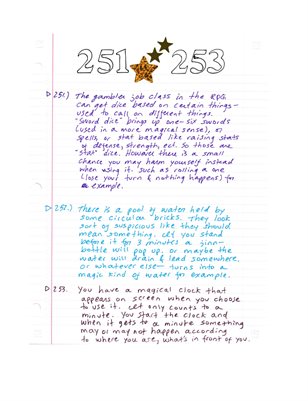 251 253
251.) The gambler job class in the RPG
can get dice based on certain things—
used to call on different things.
"Sword dice" brings up one-six swords
(used in a more magical sense), or
spells, or stat based like raising stats
of defense, strength, ect. So those are
"stat" dice. However there is a small
chance you may harm yourself instead
when using it. Such as rolling a one
(lose your turn & nothing happens) for
example.
252.) There is a pool of water held by
some circular bricks. They look
sort of suspicious like they should
mean something. Let you stand
before it for 3 minutes a jinn-
bottle will pop up. or maybe the
water will drain & lead somewhere,
or whatever else— turns into a
magic kind of water for example.
253. You have a magical clock that
appears on screen when you choose
to use it. Let only counts to a
minute. You start the clock and
when it gets to a minute something
may or may not happen according
to where you are, what's in front of you.